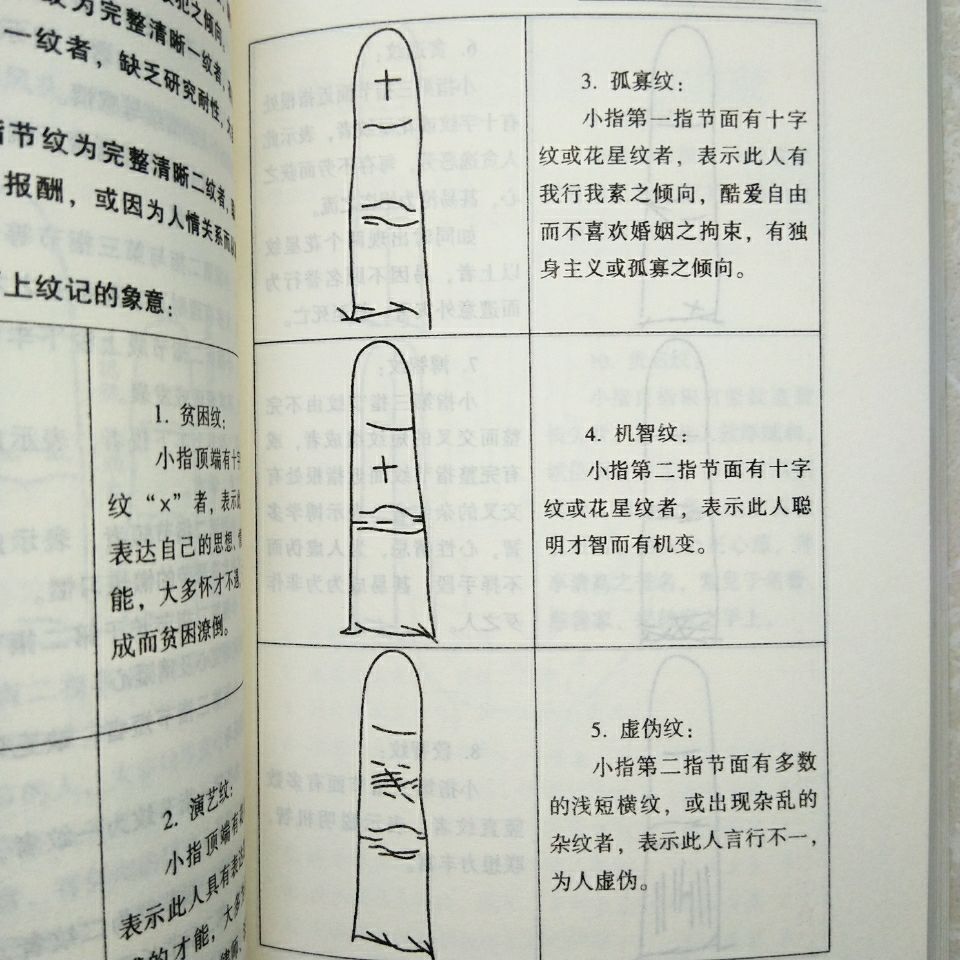 犯之倾向。
纹为完整清晰一纹者,
一纹者,缺乏研究耐性,
指节纹为完整清晰二纹者,
报酬,或因为人情关系而
上纹记的象意:
1. 贫困纹:
小指顶端有十字
纹“×”者,表示此
表达自己的思想、情
能,大多怀才不遇,
成而贫困潦倒。
2. 演艺纹:
小指顶端有
表示此人具有表达
的才能,大多
3. 孤寡纹:
小指第一指节面有十字
纹或花星纹者,表示此人有
我行我素之倾向,酷爱自由
而不喜欢婚姻之拘束,有独
身主义或孤寡之倾向。
4. 机智纹:
小指第二指节面有十字
纹或花星纹者,表示此人聪
明才智而有机变。
5. 虚伪纹:
小指第二指节面有多数
的浅短横纹,或出现杂乱的
杂纹者,表示此人言行不一,
为人虚伪。